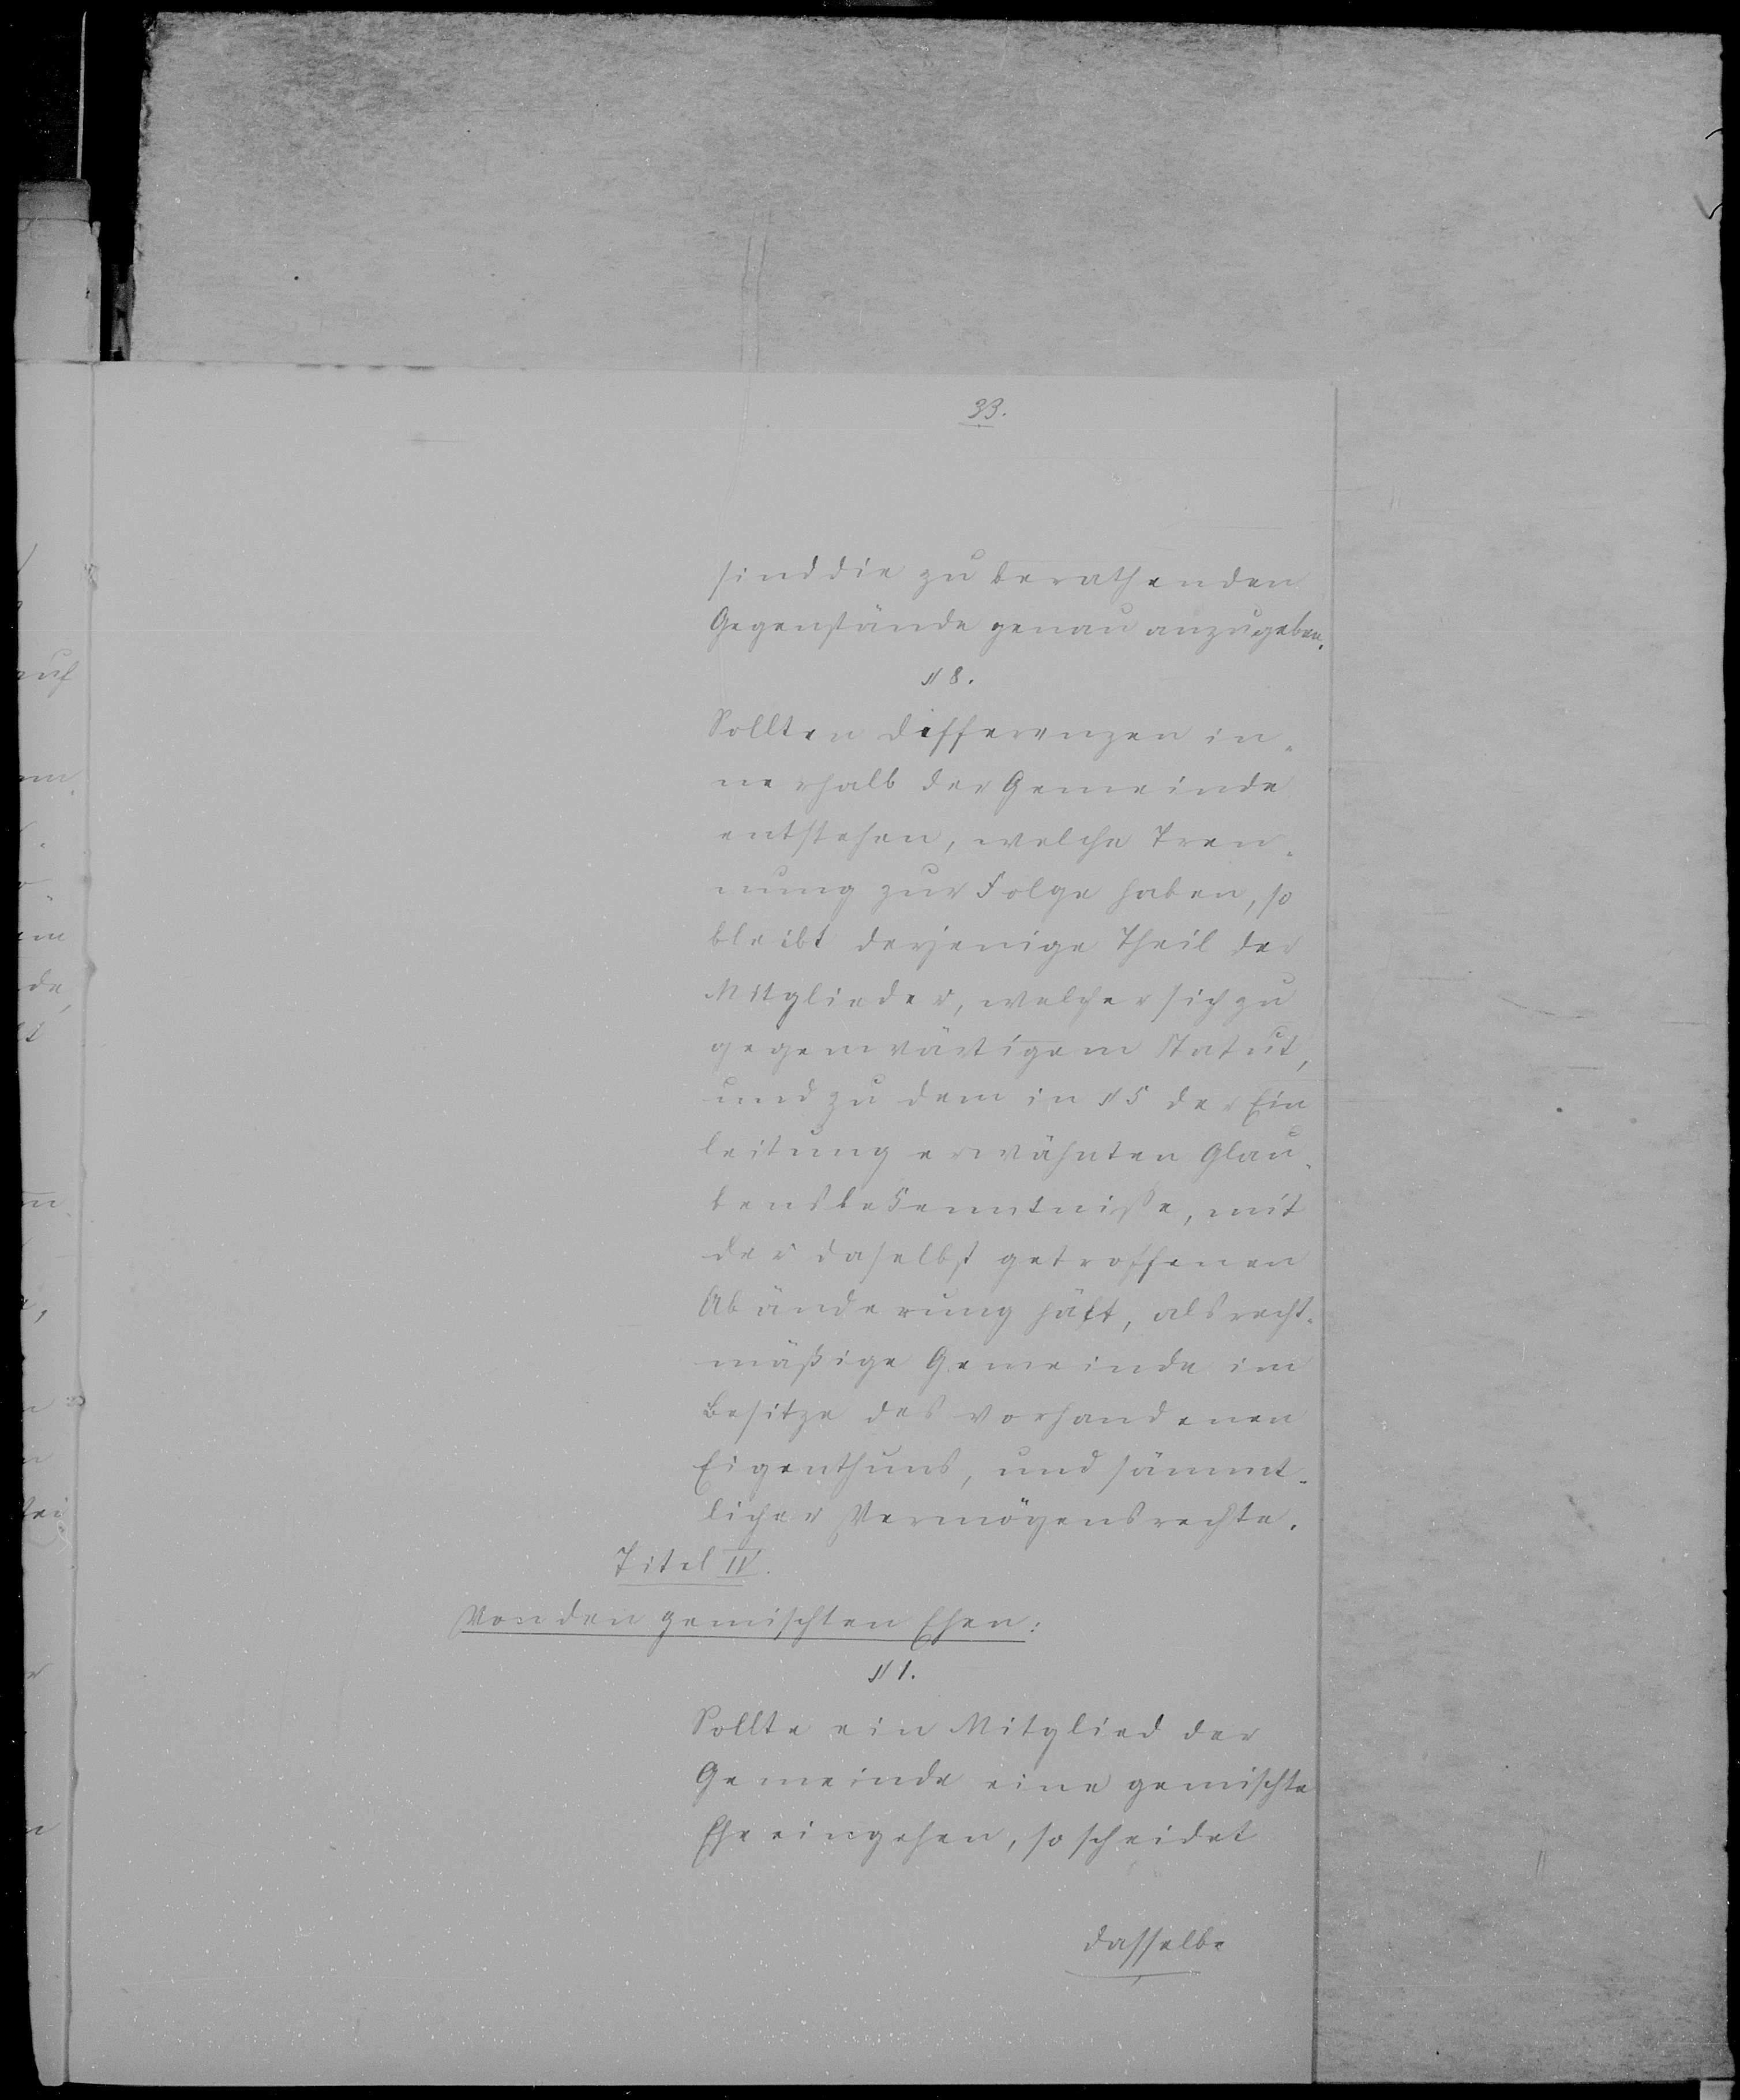 33.
sind die zu berathenden
Gegenstände genau anzugeben.
§ 8.
Sollten Differenzen in-
nerhalb der Gemeinde
entstehen, welche Tren-
nung zur Folge haben, so
bleibt derjenige Theil der
Mitglieder, welcher sich zu
gegenwärtigem Statut,
und zu dem in § 5 der Ein
leitung erwähnten Glau-
bensbekenntnisse, mit
der daselbst getroffenen
Abänderung hält, als recht-
mäßige Gemeinde im
Besitze des vorhandenen
Eigenthums, und sämmt-
licher Vermögensrechte.
Titel IV.
Von den gemischten Ehen:
§ 1.
Sollte ein Mitglied der
Gemeinde eine gemischte
Ehe eingehen, so scheidet
dasselbe